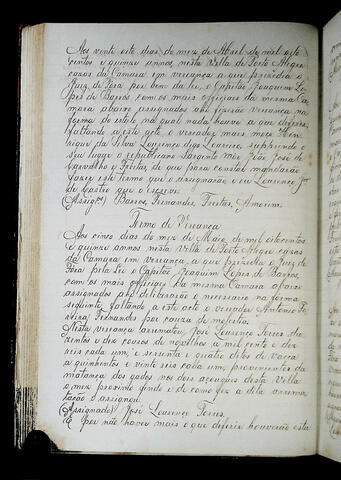 Aos vinte oito dias do mez de Abril de mil oito
centos e quinze annos, nesta Villa de Porto Alegre
cazas da Camara em veriança a que prezidia o
Juiz de Fora por bem da lei, o Capitão Joaquim Lo-
pes de Barros com os mais officiaes da mesma Ca-
mara abaixo assignados ahi fizerão veriança na
forma do estilo na qual nada houve a que diferir,
faltando a este acto o vereador mais moço Hen-
rique da Silva Lourenço digo Loureiro, suprindo o
seu lugar o republicano Sargento Mór João José de
Carvalho e Freitas, de que para constar mandarão
fazer este termo que o assignarão e eu Lourenço Jr.
de Castro que o escrevi.
(Assigos) Barros, Fernandes, Freitas, Amorim.
Termo de Viriança
Aos cinco dias do mez de Maio de mil oitocentos
e quinze annos nesta Villa de Porto Alegre cazas
da Camara em veriança, a que prezidia o Juiz de
Fora pela Lei o Capitão Joaquim Lopes de Barros,
com os mais officiaes da mesma Camara abaixo
assignados ahi deliberarão o necessario na forma
seguinte faltando a este acto o vereador Antonio Fer-
reira Fernandes por cauza de molestia.
Nesta veriança arrematou José Lourenço Torres du-
zentos e dez couros de novilhos a mil cento e dez
reis cada um; e sessenta e quatro ditos de vacca
a quinhentos e vinte reis cada um, provenientes da
matança dos gados nos dois açougues desta Villa
o mez proximo findo e de como fez a dita arrema-
tação o assignou.
(Assignado) José Lourenço Torres.
E por não haver mais o que deferir houverão esta